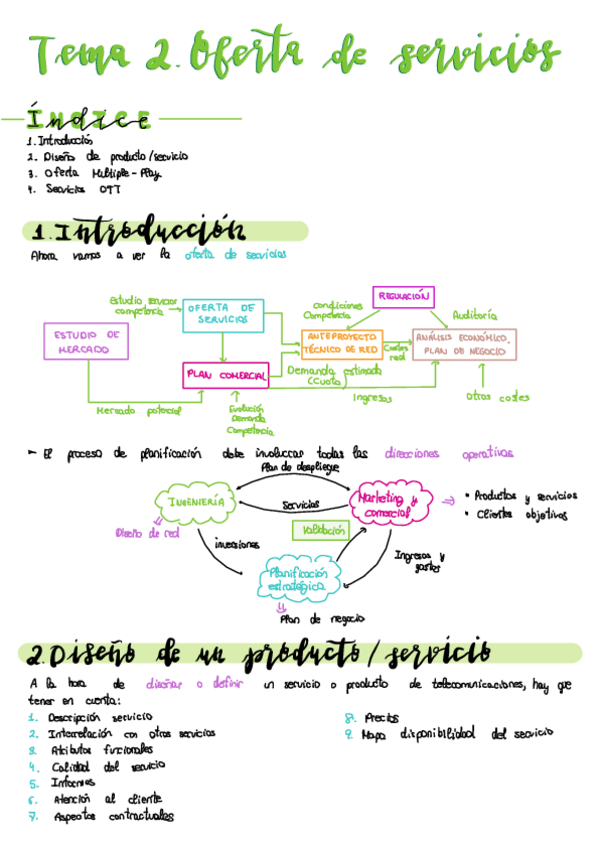 Tema 2. Oferta de servicios
Índice
1. Introducción
2. Diseño de producto/servicio
3. Oferta Multiple-Play
4. Servicios OTT
1. Introducción
Ahora vamos a ver la oferta de servicios
REGULACIÓN
Estudio servicios
competencia
OFERTA DE
SERVICIOS
condiciones
Competencia
Auditoría
ESTUDIO DE
MERCADO
ANTEPROYECTO
TÉCNICO DE RED
Costes
red
ANÁLISIS ECONÓMICO.
PLAN DE NEGOCIO
PLAN COMERCIAL
Demanda estimada
(Cuota)
Mercado potencial
Evolución
Demanda
Competencia
Ingresos
Otros costes
- El proceso de planificación debe involucrar todas las direcciones operativas
Plan de despliegue
INGENIERÍA
Servicios
Marketing y
comercial
• Productos y servicios
• Clientes objetivos
Diseño de red
Validación
inversiones
Ingresos y
gastos
Planificación
estratégica
Plan de negocio
2. Diseño de un producto/servicio
A la hora de diseñar o definir un servicio o producto de telecomunicaciones, hay que
tener en cuenta:
1. Descripción servicio
2. Interrelación con otros servicios
3. Atributos funcionales
4. Calidad del servicio
5. Informes
6. Atención al cliente
7. Aspectos contractuales
8. Precios
9. Mapa disponibilidad del servicio